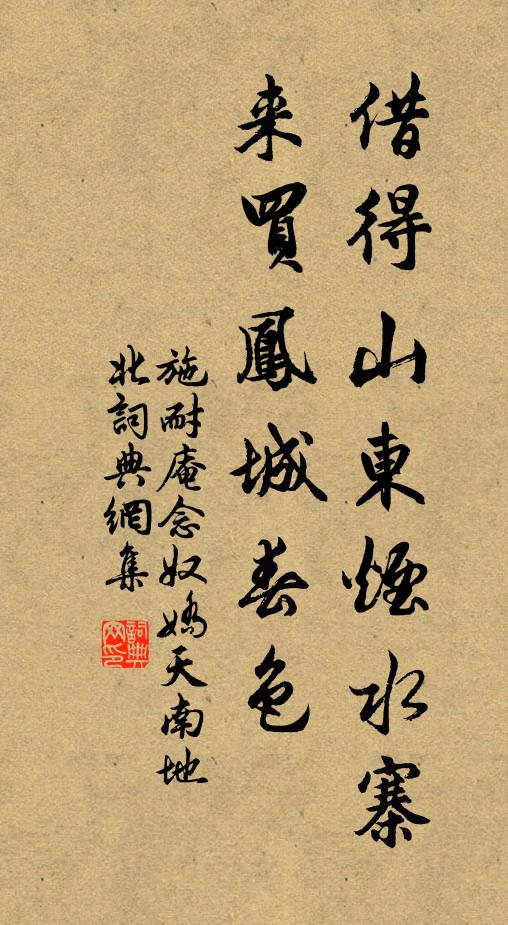 借得山東煙水寨
来買鳳城春色
施耐庵念奴嬌天南地
北詞典網集
詞典
网印